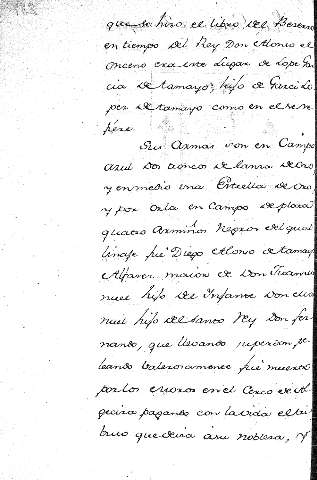 que se hizo el libro del Becerro
en tiempo del Rey Don Alonso el
Onceno era este Lugar de Lope Gar
cia de tamayo, hijo de Garci Lo
pez de tamayo como en el se re
fiere.
Sus Armas son en Campo
azul dos troncos de lanza de Oro
y en medio una Estrella de Oro,
y por orla en Campo de plata
quatro Armiños Negros del qual
linaje fué Diego Alonso de tamayo
Alferez maior de Don Juan ma
nuel hijo del Infante Don ma
nuel hijo del Santo Rey Don fer
nando, que llevando su pendon, pe
leando valerosamente fué muerto
por los moros en el Cerco de Al
gecira pagando con la vida el tri
buto que devia a su nobleza, y